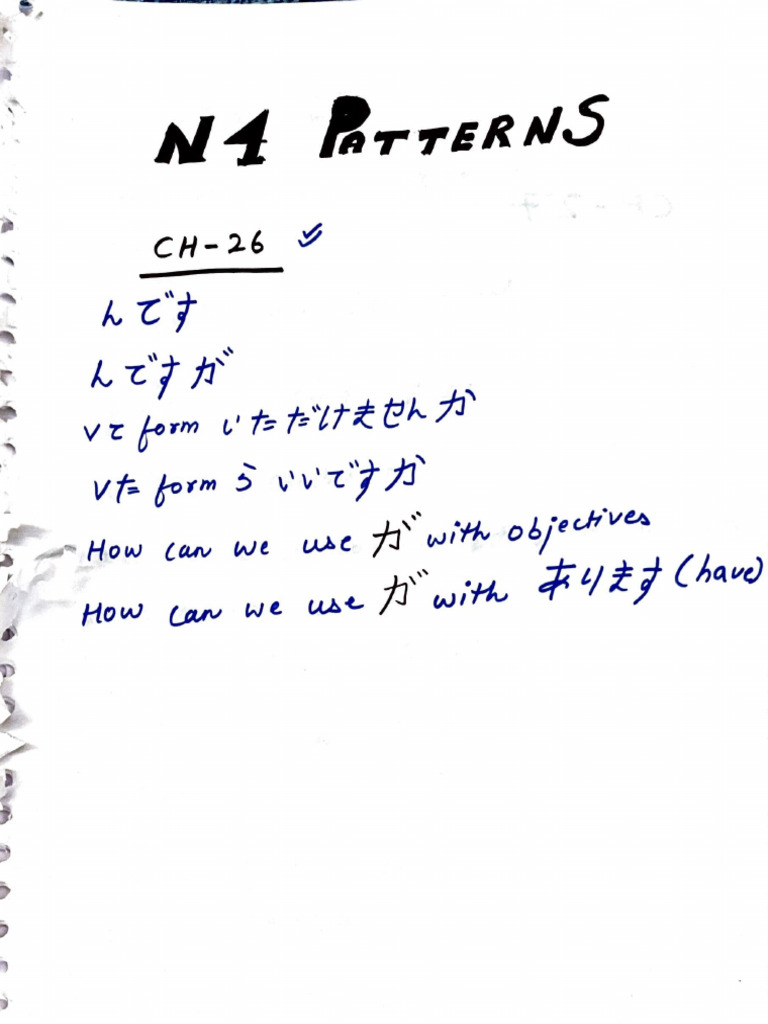 N4 PATTERNS
CH-26
んです
んですが
Vて form いただけませんか
Vた form ら いいですか
How can we use が with objectives
How can we use が with あります (have)